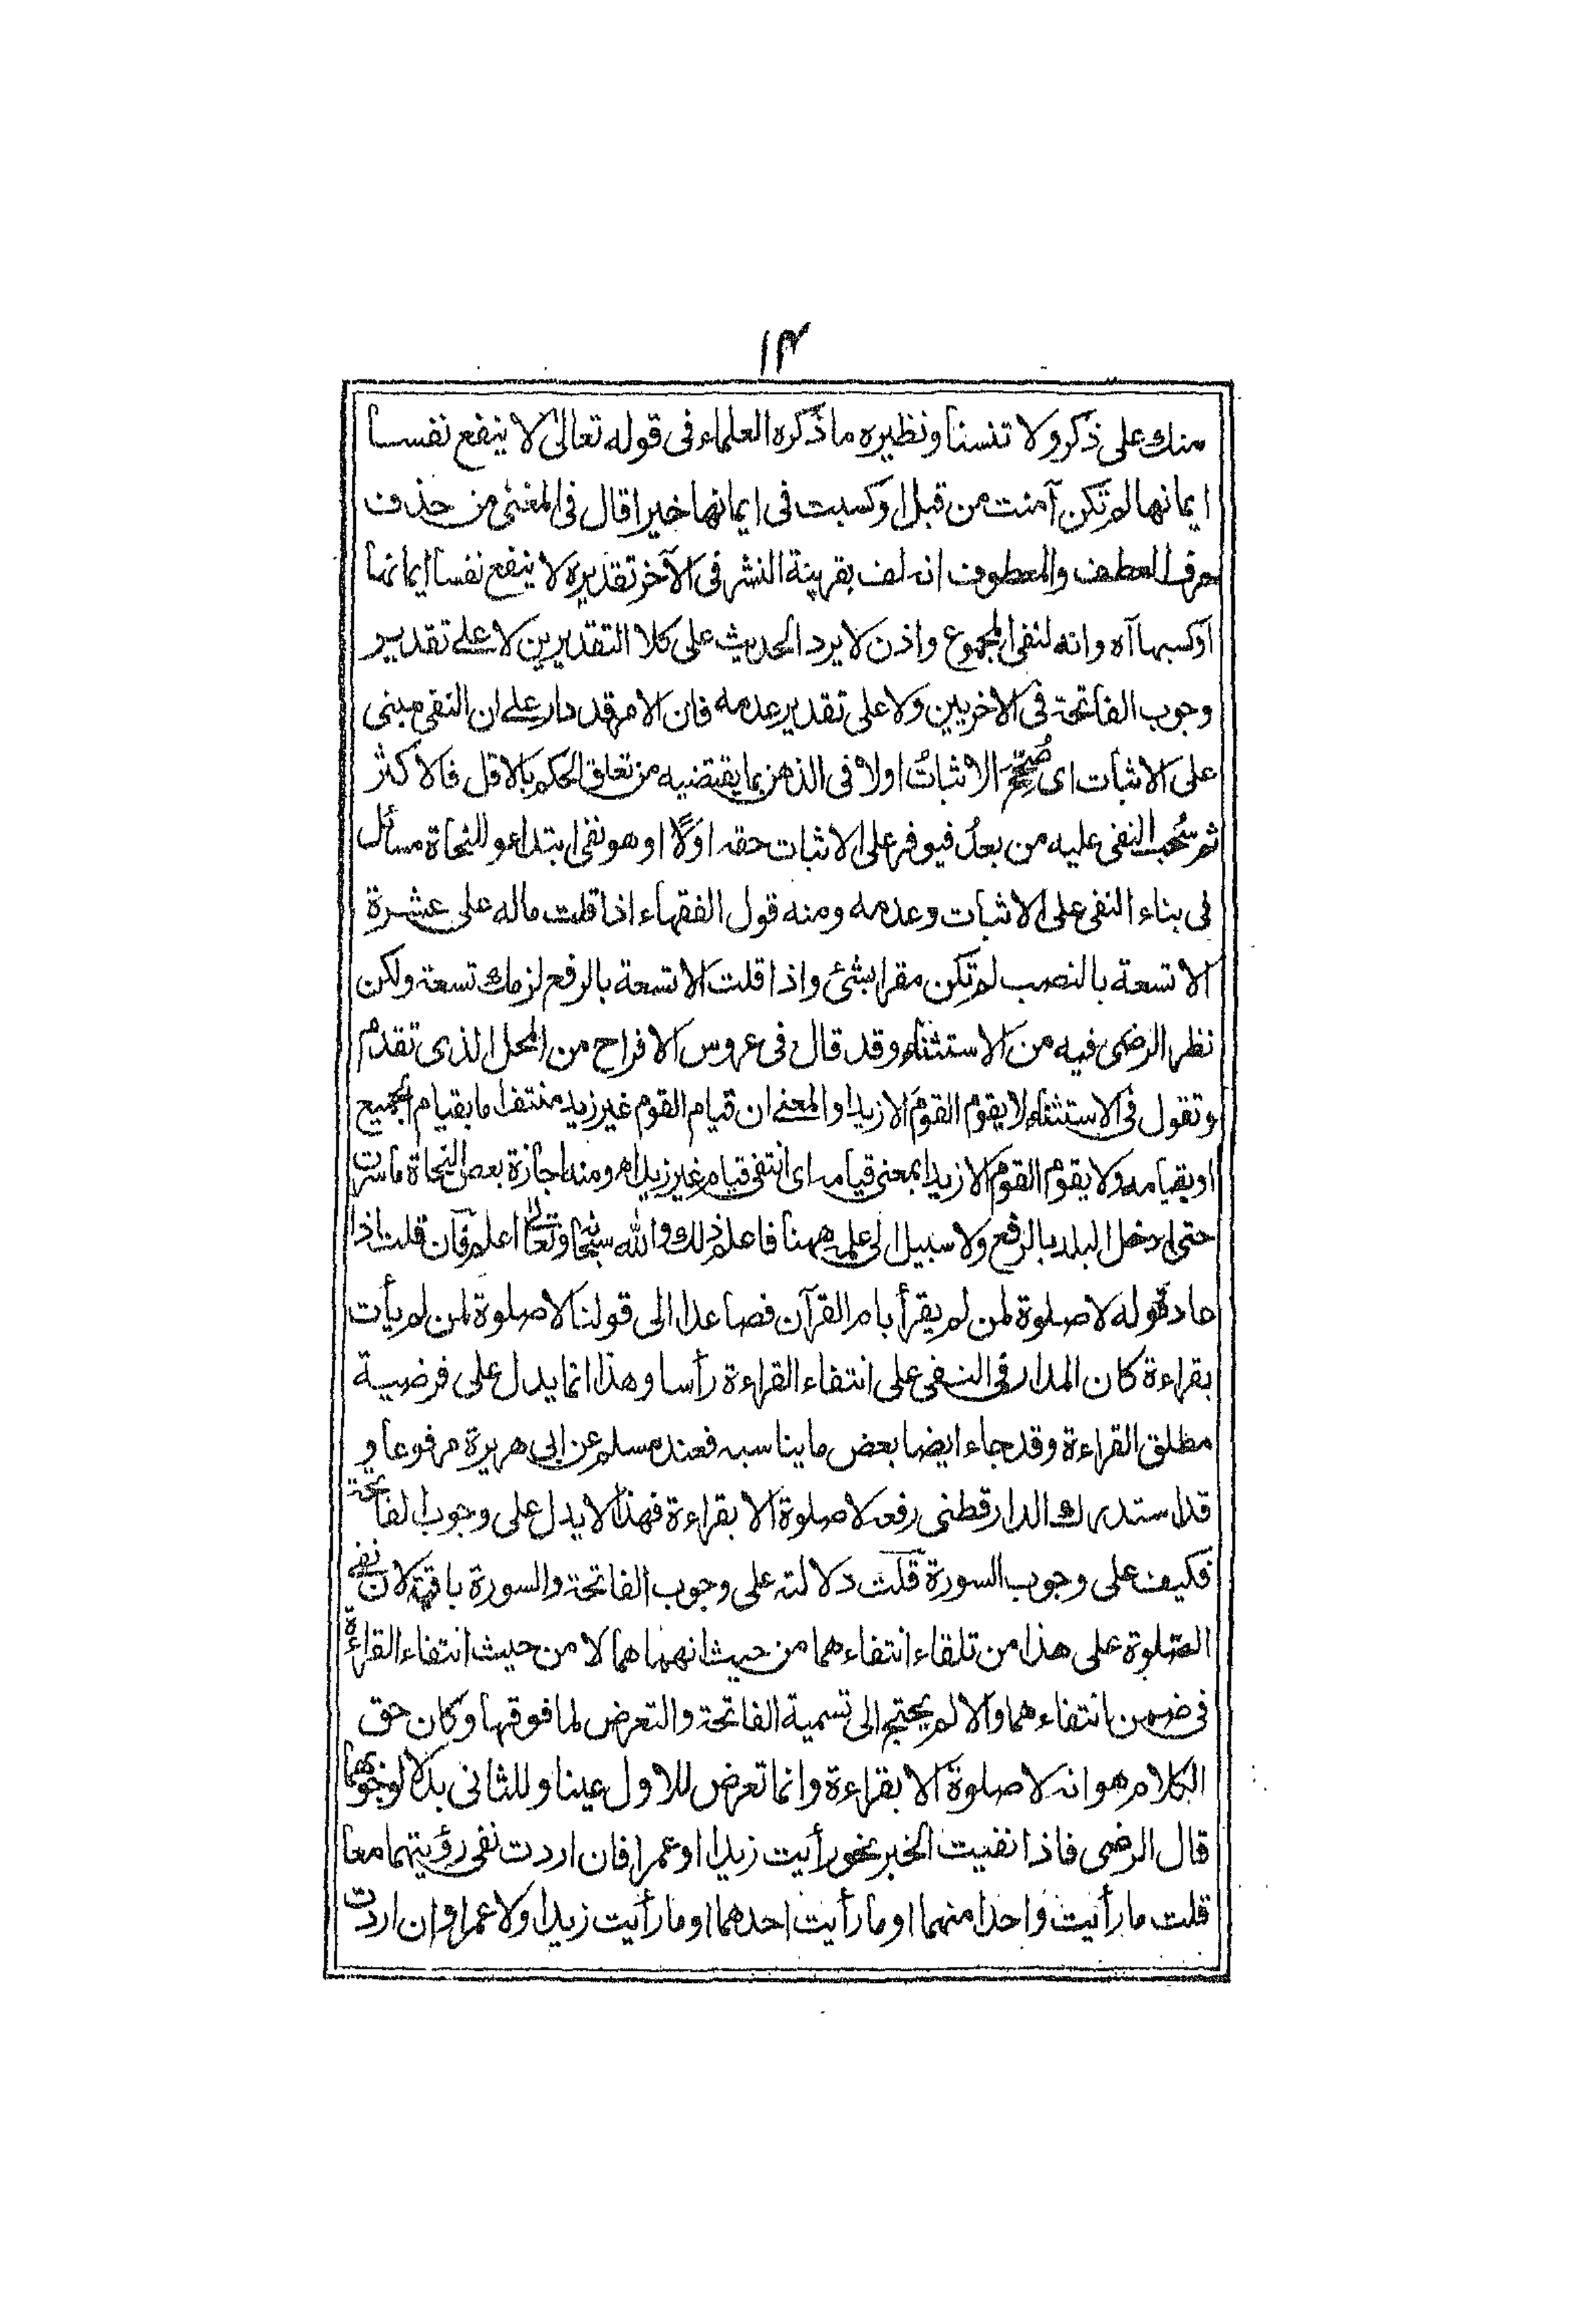 ١٤
منك على ذكر ولا تنسنا ونظيره ما ذكره العلماء فى قوله تعالىٰ لا ينفع نفسا
ايمانها لم تكن آمنت من قبل او كسبت فى ايمانها خيرا قال فى المغنى من حذف
حرف العطف والمعطوف انه لف بقرينة النشر فى الآخر تقديره لا ينفع نفسا ايمانها
او كسبها آه وانه لنفى المجموع واذن لا يرد الحديث على كلا التقديرين لا علے تقدير
وجوب الفاتحة فى الاخريين ولا على تقدير عدمه فان الامر قد دار علے ان النفى مبنى
على الاثبات اى صُحِّحَ الاثباتُ اولا فى الذهن بما يقتضيه من تعلق الحكم بالاقل فالاكثر
ثم سُحب النفى عليه من بعدُ فيوفر على الاثبات حقه اوّلًا او هو نفى ابتداءً وللنحاة مسائل
فى بناء النفى على الاثبات وعدمه ومنه قول الفقهاء اذا قلت ماله على عشرة
الا تسعة بالنصب لم تكن مقرا بشئ واذا قلت الا تسعة بالرفع لزمك تسعة ولكن
نظر الرضى فيه من الاستثناء وقد قال فى عروس الافراح من المحل الذى تقدم
وتقول فى الاستثناء لا يقوم القومُ الا زيدا والمعنے ان قيام القوم غير زيد منتف اما بقيام الجميع
او بقيامه ولا يقوم القوم الا زيدا بمعنى قيامه اى انتفى قيام غير زيد اه ومنه اجازة بعض النحاة ما سرت
حتى ادخل البلد بالرفع ولا سبيل لى علمه ههنا فاعلم ذلك والله سبحانه وتعالىٰ اعلم فآن قلت اذا
عاد قوله لا صلوة لمن لم يقرأ بام القرآن فصاعدا الى قولنا لا صلوة لمن لم يأت
بقراءة كان المدار فى النفى على انتفاء القراءة رأسا وهذا انما يدل على فرضية
مطلق القراءة وقد جاء ايضا بعض ما يناسبه فعند مسلم عن ابى هريرة مرفوعا و
قد استدرك الدارقطنى رفعه لا صلوة الا بقراءة فهذا لا يدل على وجوب الفاتحة
فكيف على وجوب السورة قلت دلالته على وجوب الفاتحة والسورة باقية لان نفى
الصلوة على هذا من تلقاء انتفاءهما من حيث انهما هما لا من حيث انتفاء القراءة
فى ضمن انتفاءهما والا لم يحتج الى تسمية الفاتحة والتعرض لما فوقها وكان حق
الكلام هو انه لا صلوةَ الا بقراءة وانما تعرض للاول عينا وللثانى بدلا لوجوبهما
قال الرضى فاذا نفيت الخبر نحو رأيت زيدا او عمرا فان اردت نفى رؤيتهما معا
قلت ما رأيت واحدا منهما او ما رأيت احدهما او ما رأيت زيدا ولا عمرا وان اردت